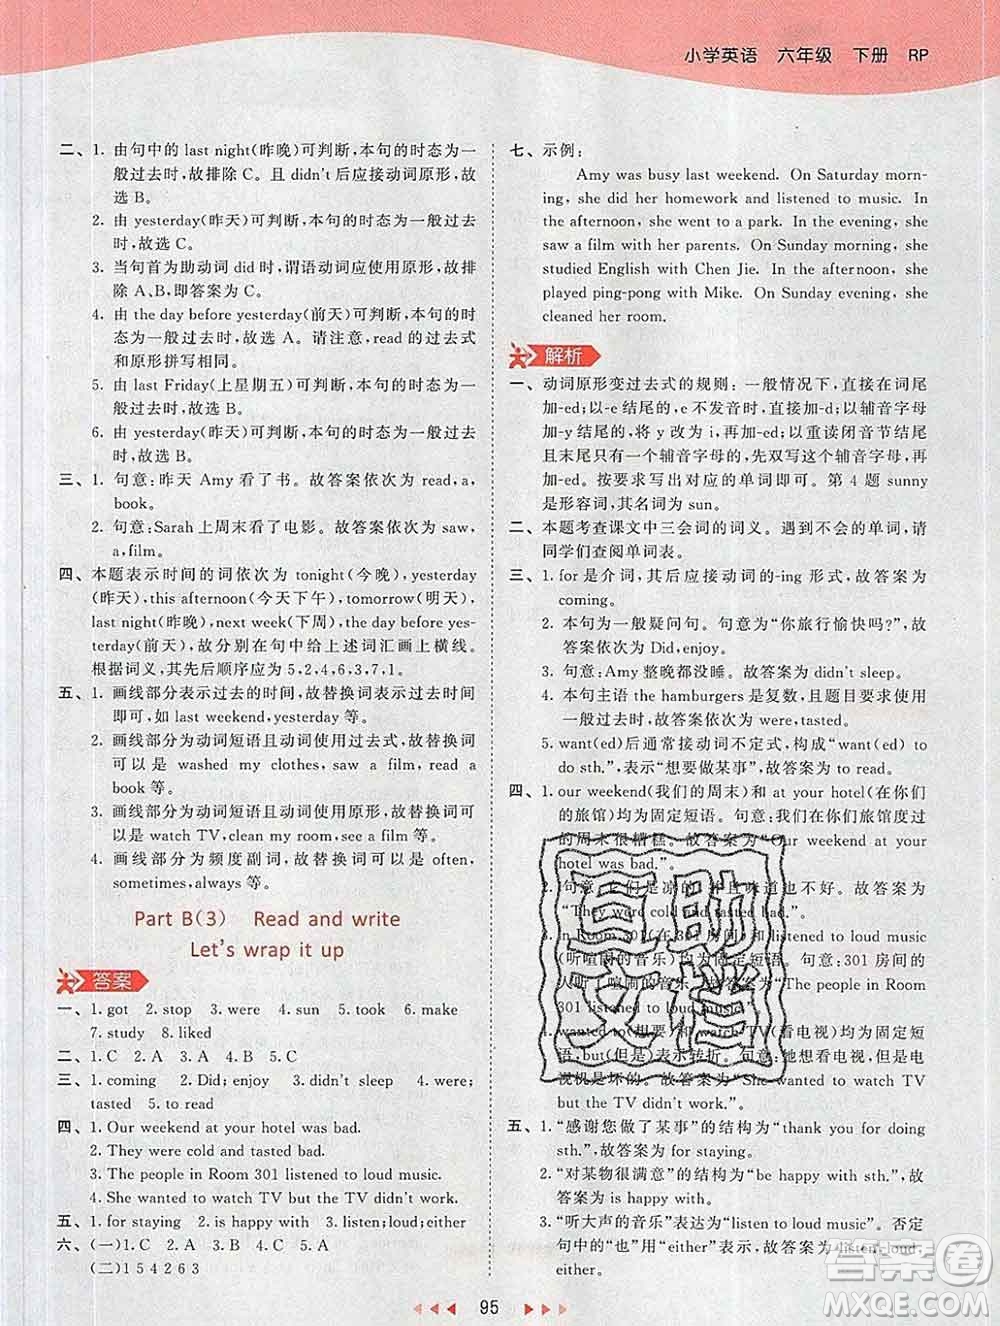 小学英语 六年级 下册 RP
二、1. 由句中的 last night(昨晚)可判断,本句的时态为一
般过去时,故排除 C。且 didn't 后应接动词原形,故
选 B。
2. 由 yesterday(昨天)可判断,本句的时态为一般过去
时,故选 C。
3. 当句首为助动词 did 时,谓语动词应使用原形,故排
除 A、B,即答案为 C。
4. 由 the day before yesterday(前天)可判断,本句的时
态为一般过去时,故选 A。请注意,read 的过去式
和原形拼写相同。
5. 由 last Friday(上星期五)可判断,本句的时态为一
般过去时,故选 B。
6. 由 yesterday(昨天)可判断,本句的时态为一般过去
时,故选 B。
三、1. 句意:昨天 Amy 看了书。故答案依次为 read,a,
book。
2. 句意:Sarah 上周末看了电影。故答案依次为 saw,
a,film。
四、本题表示时间的词依次为 tonight(今晚),yesterday
(昨天),this afternoon(今天下午),tomorrow(明天),
last night(昨晚),next week(下周),the day before yes-
terday(前天),故分别在句中给上述词汇画上横线。
根据词义,其先后顺序应为 5,2,4,6,3,7,1。
五、1. 画线部分表示过去的时间,故替换词表示过去时间
即可,如 last weekend,yesterday 等。
2. 画线部分为动词短语且动词使用过去式,故替换词
可以是 washed my clothes,saw a film,read a
book等。
3. 画线部分为动词短语且动词使用原形,故替换词可
以是 watch TV,clean my room,see a film 等。
4. 画线部分为频度副词,故替换词可以是 often,
sometimes,always 等。
Part B(3) Read and write
Let's wrap it up
答案
一、1. got 2. stop 3. were 4. sun 5. took 6. make
7. study 8. liked
二、1. C 2. A 3. A 4. B 5. B 6. C
三、1. coming 2. Did;enjoy 3. didn't sleep 4. were;
tasted 5. to read
四、1. Our weekend at your hotel was bad.
2. They were cold and tasted bad.
3. The people in Room 301 listened to loud music.
4. She wanted to watch TV but the TV didn't work.
五、1. for staying 2. is happy with 3. listen;loud;either
六、(一)1. B 2. A 3. C 4. C 5. A
(二)1 5 4 2 6 3
七、示例:
Amy was busy last weekend. On Saturday morn-
ing, she did her homework and listened to music. In
the afternoon, she went to a park. In the evening, she
saw a film with her parents. On Sunday morning, she
studied English with Chen Jie. In the afternoon, she
played ping-pong with Mike. On Sunday evening, she
cleaned her room.
解析
一、动词原形变过去式的规则:一般情况下,直接在词尾
加-ed;以-e 结尾的,e 不发音时,直接加-d;以辅音字母
加-y 结尾的,将 y 改为 i,再加-ed;以重读闭音节结尾
且末尾只有一个辅音字母的,先双写这个辅音字母,再加
-ed。按要求写出对应的单词即可。第 4 题 sunny
是形容词,其名词为 sun。
二、本题考查课文中三会词的词义。遇到不会的单词,请
同学们查阅单词表。
三、1. for 是介词,其后应接动词的-ing 形式,故答案为
coming。
2. 本句为一般疑问句。句意为“你旅行愉快吗?”,故
答案依次为 Did,enjoy。
3. 句意:Amy 整晚都没睡。故答案为 didn't sleep。
4. 本句主语 the hamburgers 是复数,且题目要求使用
一般过去时,故答案依次为 were,tasted。
5. want(ed)后通常接动词不定式,构成“want(ed) to
do sth.”,表示“想要做某事”,故答案为 to read。
四、1. our weekend(我们的周末)和 at your hotel(在你们
的旅馆)均为固定短语。句意:我们在你们旅馆度过
的周末很糟糕。故答案为“Our weekend at your
hotel was bad.”。
2. 句意:它们是凉的,并且味道也不好。故答案为
“They were cold and tasted bad.”。
3. in Room 301(在 301 房间)和 listened to loud music
(听喧闹的音乐)均为固定短语。句意:301 房间的
人听了喧闹的音乐。故答案为“The people in Room
301 listened to loud music.”。
4. wanted to(想要)和 watch TV(看电视)均为固定短
语,but(但是)表示转折。句意:她想看电视,但是电
视机是坏的。故答案为“She wanted to watch TV
but the TV didn't work.”。
五、1. “感谢您做了某事”的结构为“thank you for doing
sth.”,故答案为 for staying。
2. “对某物很满意”的结构为“be happy with sth.”,故
答案为 is happy with。
3. “听大声的音乐”表达为“listen to loud music”。否定
句中的“也”用“either”表示,故答案为 listen,loud,
either。
互助
文档
答案圈
MXQE.COM
95